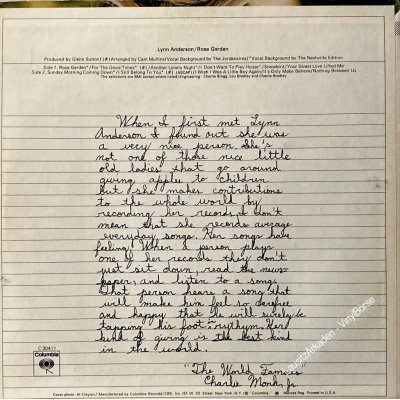 Lynn Anderson/Rose Garden
Produced by Glenn Sutton/(#) Arranged by Cam Mullins/Vocal Background by The Jordanaires/*Vocal Background by The Nashville Edition
Side 1. Rose Garden*/For The Good Times* (#)/Another Lonely Night*/I Don't Want To Play House*/Snowbird/Your Sweet Love Lifted Me
Side 2. Sunday Morning Coming Down*/I Still Belong To You* (#) (ASCAP)/I Wish I Was A Little Boy Again/It's Only Make Believe/Nothing Between Us
The selections are BMI except where noted/Engineering: Charlie Bragg, Lou Bradley and Charlie Bradley
When I first met Lynn
Anderson I found out she was
a very nice person. She's
not one of those nice little
old ladies that go around
giving apples to children
but she makes contributions
to the whole world by
recording her records. I don't
mean that she records average
everyday songs. Her songs have
feeling. When a person plays
one of her records they don't
just sit down, read the news-
paper, and listen to a song.
That person hears a song that
will make him feel so carefree
and happy that he will surely be
tapping his foot in rhythm. Her
kind of giving is the best kind
in the world.
"The World Famous"
Charlie Monk, Jr.
C 30411
Columbia
Cover photo: Al Clayton/Manufactured by Columbia Records/CBS, Inc./51 W. 52 Street, New York, N.Y./® Columbia, Marcas Reg. Printed in U.S.A.